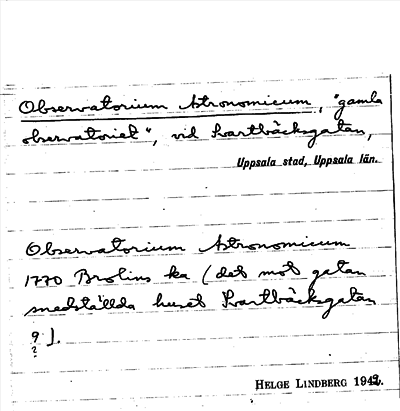 Observatorium Astronomicum, "gamla
observatoriet", vid Svartbäcksgatan,
Uppsala stad, Uppsala län.
Observatorium Astronomicum
1770 Brolins ka (det mot gatan
snedställda huset Svartbäcksgatan
9).
?
HELGE LINDBERG 1942.